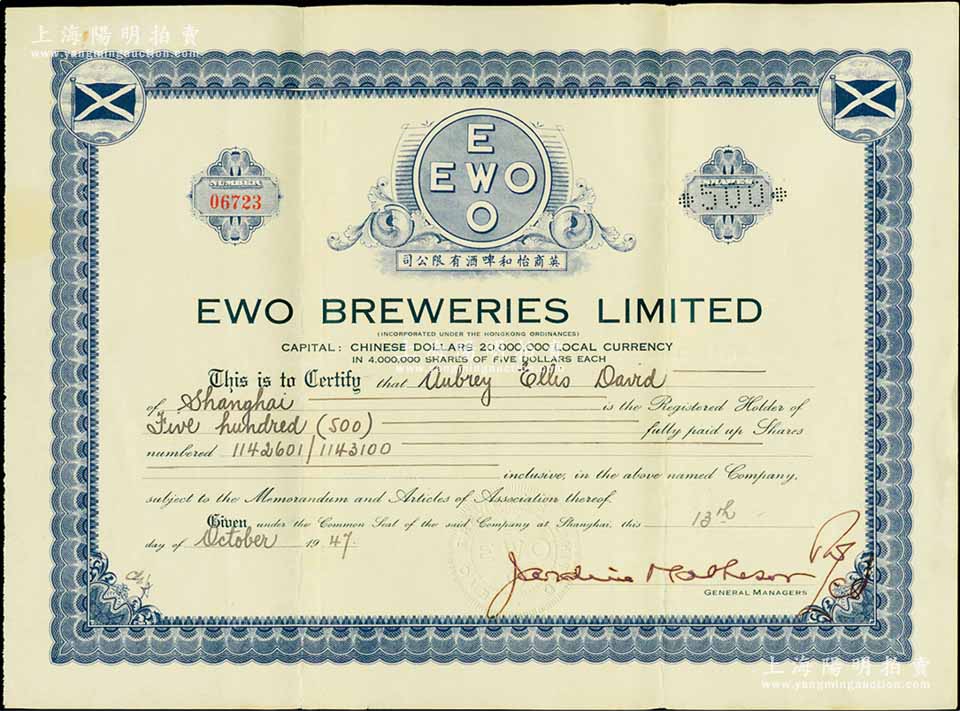 上海陽明拍賣
www.yangmingauction.com
E
EWO
O
NUMBER
06723
SHARES
500
英商怡和啤酒有限公司
EWO BREWERIES LIMITED
(INCORPORATED UNDER THE HONGKONG ORDINANCES)
CAPITAL: CHINESE DOLLARS 20,000,000 LOCAL CURRENCY
IN 4,000,000 SHARES OF FIVE DOLLARS EACH
This is to Certify that Aubrey Ellis David
of Shanghai is the Registered Holder of
Five hundred (500) fully paid up Shares
numbered 1142601/1143100
inclusive, in the above named Company,
subject to the Memorandum and Articles of Association thereof.
Given under the Common Seal of the said Company at Shanghai, this 13th
day of October 1947.
EWO
Jardine Matheson
GENERAL MANAGERS
上海陽明拍賣
www.yangmingauction.com